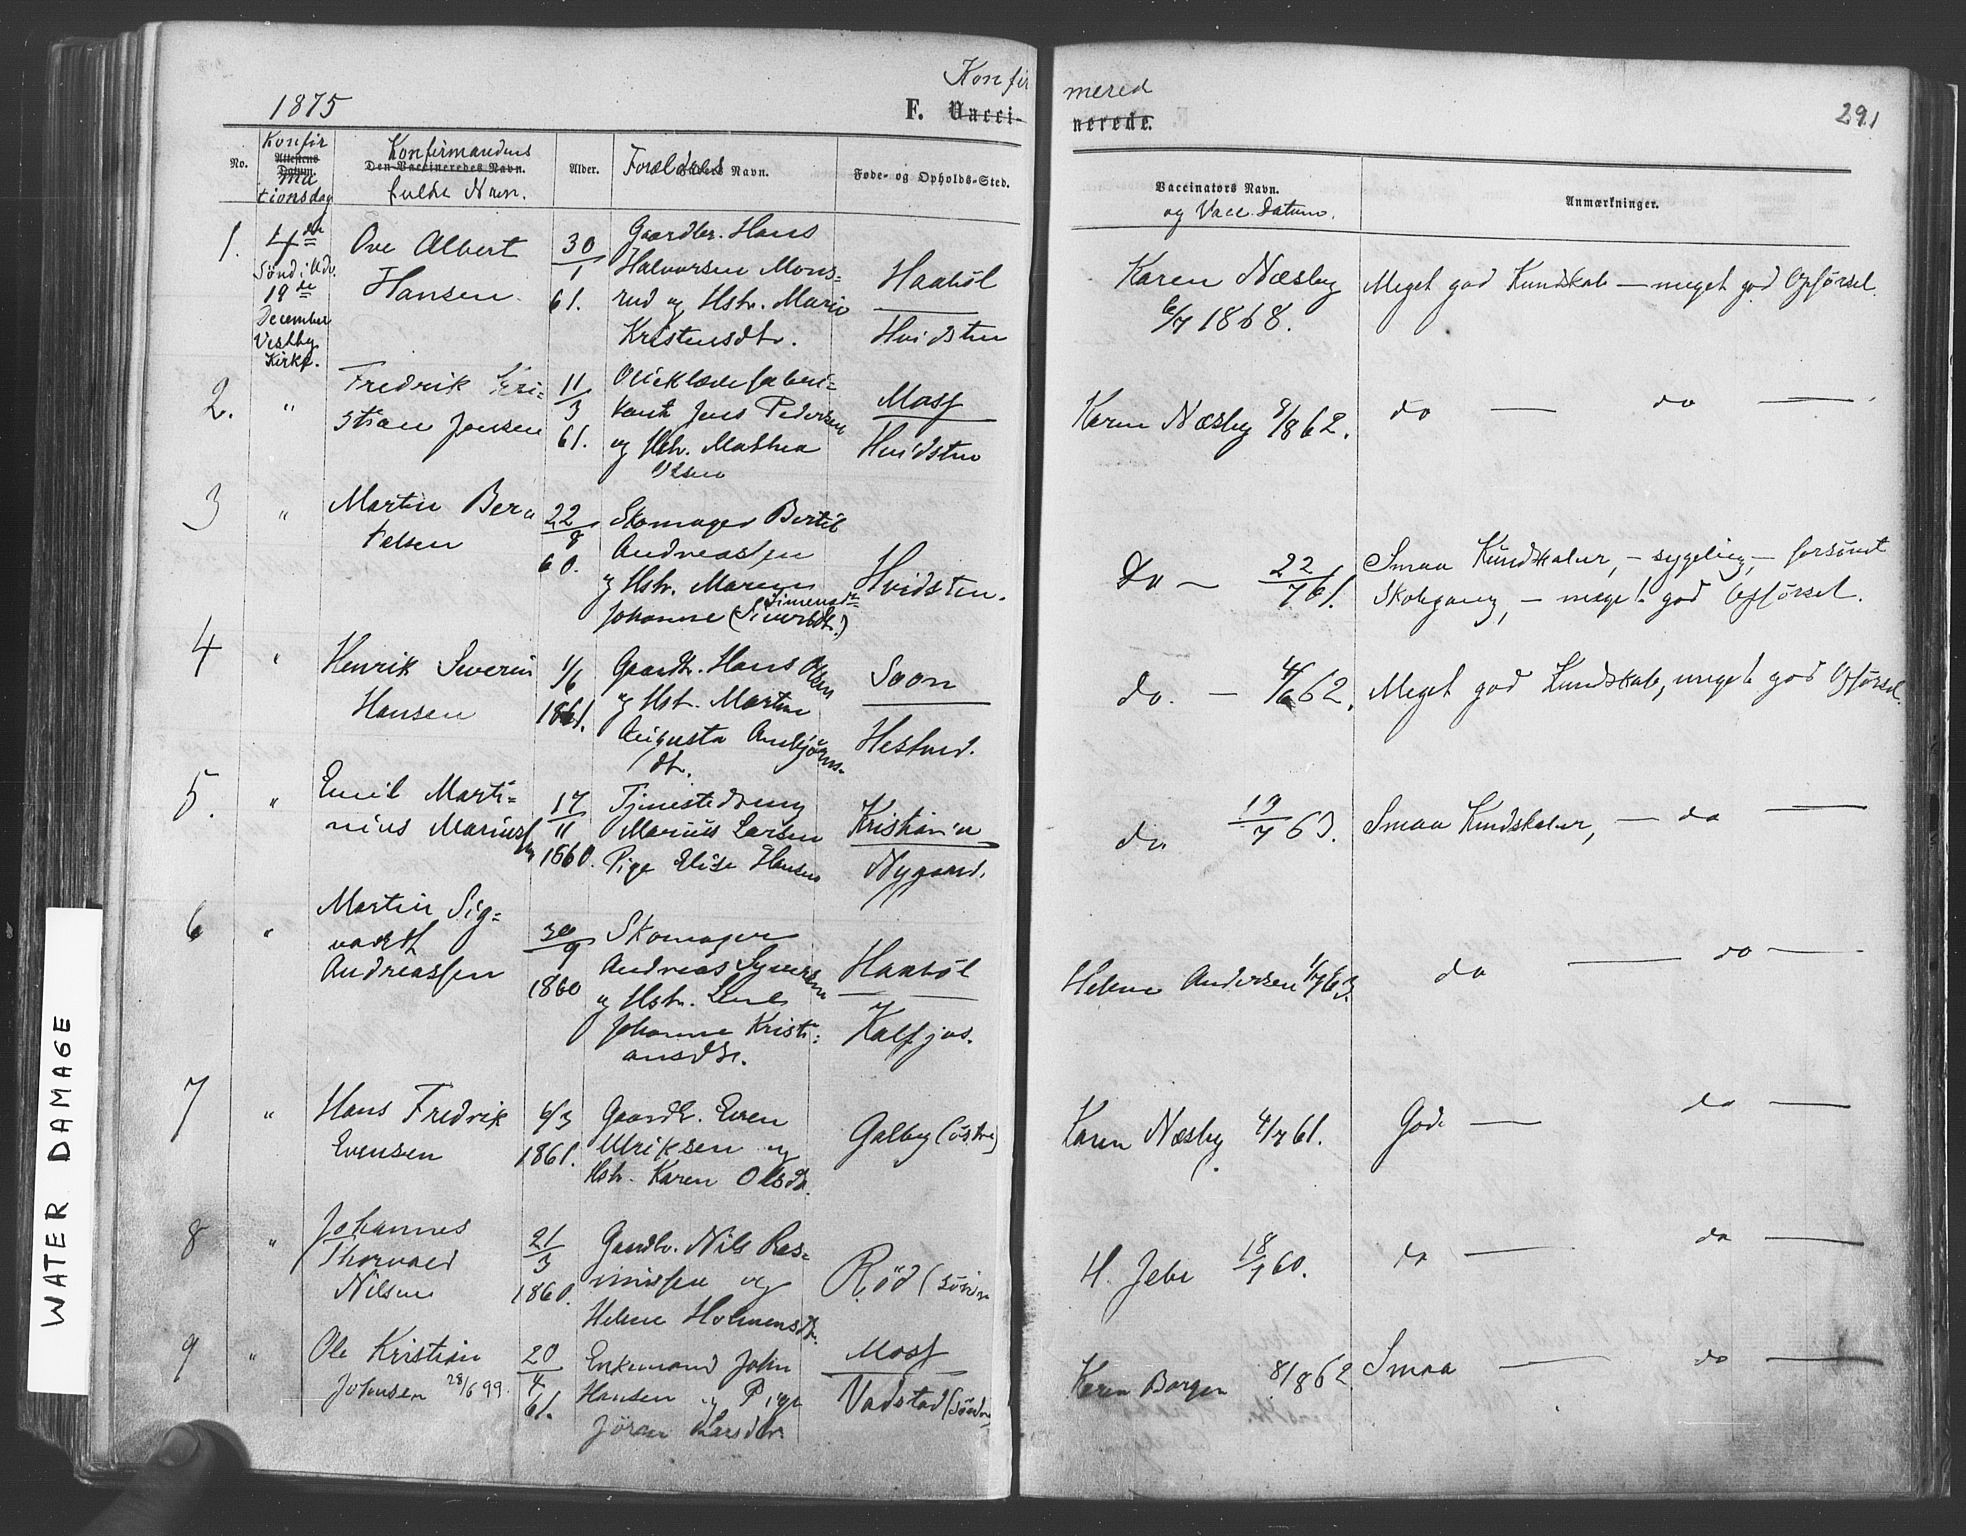 Konfir
mered
1875
F. Vacci-
nerede.
291
No.
Konfir
Attestens
Datum.
ma
tionsdag
Konfirmandens
Den Vaccineredes Navn.
fulde Navn.
Alder.
Forældrenes Navn.
Føde- og Opholds-Sted.
Vaccinators Navn.
og Vacc. Datum.
Anmærkninger.
1.
4de
Sønd. i Adv.
19de
December
Vestby
Kirke.
Ove Albert
Hansen
30/1
61.
Gaardbr. Hans
Halvorsen Mons-
rud og Hstr. Marie
Kristensdtr.
Haabøl
Hvidsten
Karen Næsby
6/7 1868.
Meget god Kundskab — meget god Opførsel.
2.
"
Fredrik Kri-
stian Jensen
11/3
61.
Olieklædefabri-
kant Jens Pedersen
og Hstr. Mathea
Olsen
Moss
Hvidsten
Karen Næsby 8/8 62.
do — do —
3
"
Martin Ber
telsen
22/8
60.
Skomager Bertil
Andreassen
og Hstr. Maren
Johanne (Sivertsdtr.)
Simensdtr
Hvidsten.
Do — 22/7 61.
Smaa Kundskaber, — sygelig, — forsømt
Skolegang, — meget god Opførsel.
4
"
Henrik Severin
Hansen
1/6
1861.
Gaardbr. Hans Olsen
og Hst. Martine
Augusta Ambjørns-
dtr.
Soon
Hestned.
do. — 4/6 62.
Meget god Kundskab, meget god Opførsel.
5.
"
Emil Marti-
nius Mariussen
17/11
1860.
Tjenestedreng
Marius Larsen
Pige Elise Hansen
Kristiania
Nygaard.
do 19/7 63.
Smaa Kundskaber, — do —
6
"
Martin Sig-
vardth
Andreassen
30/9
1860
Skomager
Andreas Syversen
og Hstr. Lene
Johanne Kristi-
ansdtr.
Haabøl
Kalfjøs.
Helene Andersen 1/7 63.
do — do —
7
"
Hans Fredrik
Evensen
6/3
1861.
Gaardbr. Even
Ulriksen og
Hstr. Karen Olsdtr.
Galby (østre)
Karen Næsby 4/7 61.
Gode — do —
8
"
Johannes
Thorvald
Nilsen
21/3
1860.
Gaardbr. Nils Ras-
mussen og
Helene Holmensdtr.
Rød (søndre
H. Jebe 18/7 60.
do — do —
9
"
Ole Kristian
Johnsen 28/6 99.
20/4
61.
Enkemand John
Hansen og Pige
Jøran Larsdtr.
Moss
Vadstad (søndre
Karen Borgen 8/8 62
Smaa — do —
WATER DAMAGE